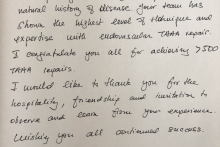 natural history of disease. Your team has
shown the highest level of technique and
expertise with endovascular TAAA repair.
I congratulate you all for achieving >500
TAAA repairs.
I would like to thank you for the
hospitality, friendship and invitation to
observe and learn from your experience
Wishing you all continued success.